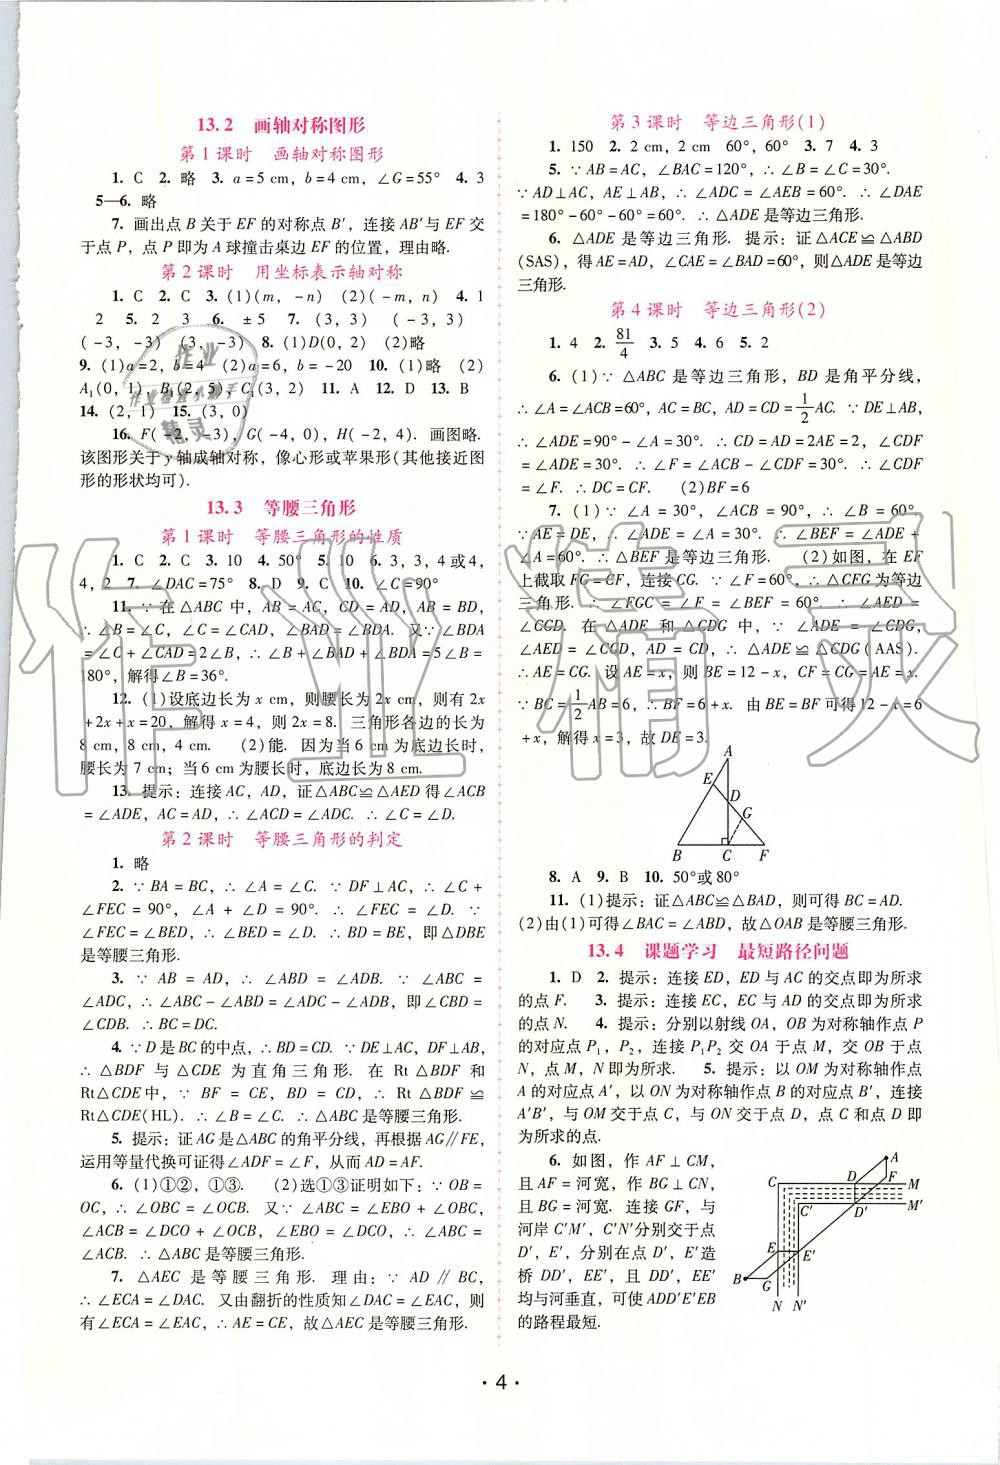 13.2 画轴对称图形
第1课时 画轴对称图形
1. C 2. 略 3. a=5 cm, b=4 cm, ∠G=55° 4. 3
5—6. 略
7. 画出点B关于EF的对称点B′,连接AB′与EF交
于点P,点P即为A球撞击桌边EF的位置,理由略.
第2课时 用坐标表示轴对称
1. C 2. C 3. (1)(m,-n) (2)(-m,n) 4. 1
2 5. 2 3 6. ±5 7. (3,3) (-3,3)
(-3,-3) (3,-3) 8. (1)D(0,2) (2)略
9. (1)a=2,b=4 (2)a=6,b=-20 10. (1)略 (2)
A₁(0,1),B₁(2,5),C₁(3,2) 11. A 12. D 13. B
14. (2,1) 15. (3,0)
16. F(-2,-3),G(-4,0),H(-2,4). 画图略.
该图形关于y轴成轴对称,像心形或苹果形(其他接近图
形的形状均可).
13.3 等腰三角形
第1课时 等腰三角形的性质
1. C 2. C 3. 10 4. 50° 5. 10 6. 3,3,4或4,
4,2 7. ∠DAC=75° 8. D 9. C 10. ∠C=90°
11. ∵在△ABC中,AB=AC,CD=AD,AB=BD,
∴∠B=∠C,∠C=∠CAD,∠BAD=∠BDA. 又∵∠BDA
=∠C+∠CAD=2∠B,∴∠B+∠BAD+∠BDA=5∠B=
180°,解得∠B=36°.
12. (1)设底边长为x cm,则腰长为2x cm,则有2x
+2x+x=20,解得x=4,则2x=8. 三角形各边的长为
8 cm,8 cm,4 cm. (2)能. 因为当6 cm为底边长时,
腰长为7 cm;当6 cm为腰长时,底边长为8 cm.
13. 提示:连接AC,AD,证△ABC≌△AED得∠ACB
=∠ADE,AC=AD,∴∠ACD=∠ADC. ∴∠C=∠D.
第2课时 等腰三角形的判定
1. 略
2. ∵BA=BC,∴∠A=∠C. ∵DF⊥AC,∴∠C+
∠FEC=90°,∠A+∠D=90°. ∴∠FEC=∠D. ∵
∠FEC=∠BED,∴∠BED=∠D. ∴BD=BE,即△DBE
是等腰三角形.
3. ∵AB=AD,∴∠ABD=∠ADB. ∵∠ABC=
∠ADC,∴∠ABC-∠ABD=∠ADC-∠ADB,即∠CBD=
∠CDB. ∴BC=DC.
4. ∵D是BC的中点,∴BD=CD. ∵DE⊥AC,DF⊥AB,
∴△BDF与△CDE为直角三角形. 在Rt△BDF和
Rt△CDE中,∵BF=CE,BD=CD,∴Rt△BDF≌
Rt△CDE(HL). ∴∠B=∠C. ∴△ABC是等腰三角形.
5. 提示:证AG是△ABC的角平分线,再根据AG∥FE,
运用等量代换可证得∠ADF=∠F,从而AD=AF.
6. (1)①②,①③. (2)选①③证明如下:∵OB=
OC,∴∠OBC=∠OCB. 又∵∠ABC=∠EBO+∠OBC,
∠ACB=∠DCO+∠OCB,∠EBO=∠DCO,∴∠ABC=
∠ACB. ∴△ABC是等腰三角形.
7. △AEC是等腰三角形. 理由:∵AD∥BC,
∴∠ECA=∠DAC. 又由翻折的性质知∠DAC=∠EAC,则
有∠ECA=∠EAC,∴AE=CE,故△AEC是等腰三角形.
第3课时 等边三角形(1)
1. 150 2. 2 cm,2 cm 60°,60° 3. 7 4. 3
5. ∵AB=AC,∠BAC=120°,∴∠B=∠C=30°.
∵AD⊥AC,AE⊥AB,∴∠ADC=∠AEB=60°. ∴∠DAE
=180°-60°-60°=60°. ∴△ADE是等边三角形.
6. △ADE是等边三角形. 提示:证△ACE≌△ABD
(SAS),得AE=AD,∠CAE=∠BAD=60°,则△ADE是等边
三角形.
第4课时 等边三角形(2)
1. 4 2. 81/4 3. 5 4. 6 5. 2
6. (1)∵△ABC是等边三角形,BD是角平分线,
∴∠A=∠ACB=60°,AC=BC,AD=CD=1/2AC. ∵DE⊥AB,
∴∠ADE=90°-∠A=30°. ∴CD=AD=2AE=2,∠CDF
=∠ADE=30°. ∴∠F=∠ACB-∠CDF=30°. ∴∠CDF
=∠F. ∴DC=CF. (2)BF=6
7. (1)∵∠A=30°,∠ACB=90°,∴∠B=60°.
∵AE=DE,∴∠ADE=∠A=30°. ∴∠BEF=∠ADE+
∠A=60°. ∴△BEF是等边三角形. (2)如图,在EF
上截取FG=CF,连接CG. ∵∠F=60°,∴△CFG为等边
三角形. ∴∠FGC=∠F=∠BEF=60°. ∴∠AED=
∠CGD. 在△ADE和△CDG中,∵∠ADE=∠CDG,
∠AED=∠CGD,AD=CD,∴△ADE≌△CDG(AAS).
∴AE=CG. 设AE=x,则BE=12-x,CF=CG=AE=x.
∵BC=1/2AB=6,∴BF=6+x. 由BE=BF可得12-x=6
+x,解得x=3,故DE=3.
A
E
D
G
B C F
8. A 9. B 10. 50°或80°
11. (1)提示:证△ABC≌△BAD,则可得BC=AD.
(2)由(1)可得∠BAC=∠ABD,故△OAB是等腰三角形.
13.4 课题学习 最短路径问题
1. D 2. 提示:连接ED,ED与AC的交点即为所求
的点F. 3. 提示:连接EC,EC与AD的交点即为所求
的点N. 4. 提示:分别以射线OA,OB为对称轴作点P
的对应点P₁,P₂,连接P₁P₂交OA于点M,交OB于点
N,点M,N即为所求. 5. 提示:以OM为对称轴作点
A的对应点A′,以ON为对称轴作点B的对应点B′,连接
A′B′,与OM交于点C,与ON交于点D,点C和点D即
为所求的点.
6. 如图,作AF⊥CM,
且AF=河宽,作BG⊥CN,
且BG=河宽. 连接GF,与
河岸C′M′,C′N′分别交于点
D′,E′,分别在点D′,E′造
桥DD′,EE′,且DD′,EE′
均与河垂直,可使ADD′E′EB
的路程最短.
A
C D F M
C′ D′ M′
E E′
B G
N N′
·4·
作业
作业精灵小助手
精灵
作业精灵